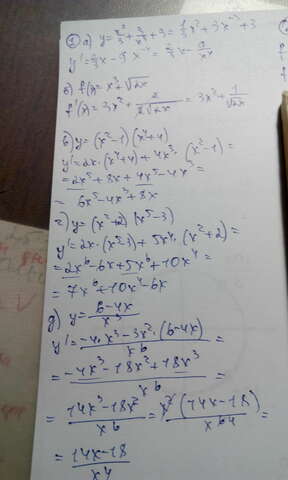 1) а) y = x²/3 + 3/x³ + 3 = 1/3 x² + 3x⁻³ + 3
y' = 2/3 x - 9x⁻⁴ = 2/3 x - 9/x⁴
б) f(x) = x³ + √2x
f'(x) = 3x² + 2/2√2x = 3x² + 1/√2x
в) y = (x²-1)(x⁴+4)
y' = 2x·(x⁴+4) + 4x³·(x²-1) =
= 2x⁵ + 8x + 4x⁵ - 4x³ =
= 6x⁵ - 4x³ + 8x
г) y = (x²+2)(x⁵-3)
y' = 2x·(x⁵-3) + 5x⁴·(x²+2) =
= 2x⁶ - 6x + 5x⁶ + 10x⁴ =
= 7x⁶ + 10x⁴ - 6x
д) y = 6-4x/x³
y' = -4·x³ - 3x²·(6-4x)/x⁶ =
= -4x³ - 18x² + 18x³/x⁶ =
= 14x³ - 18x²/x⁶ = x²(14x-18)/x⁶ ⁴ =
= 14x-18/x⁴